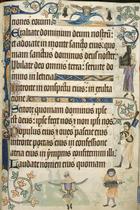 nones eorum
Exaltate dominum deum nostrū
et adorate in monte sancto eius: quo
niam sanctus dominus deus noster
Iubilate deo omnis terra: seruite
domino in leticia
Introite in conspectu eius: in exul
tacione
Scitote quoniam dominus ipse
est deus: ipse fecit nos & non ipsi nos
Populus eius et oues pascue eius in
troite portas eius in confessione
atria eius in ympnis confitemini illi
Laudate nomen eius quoniam